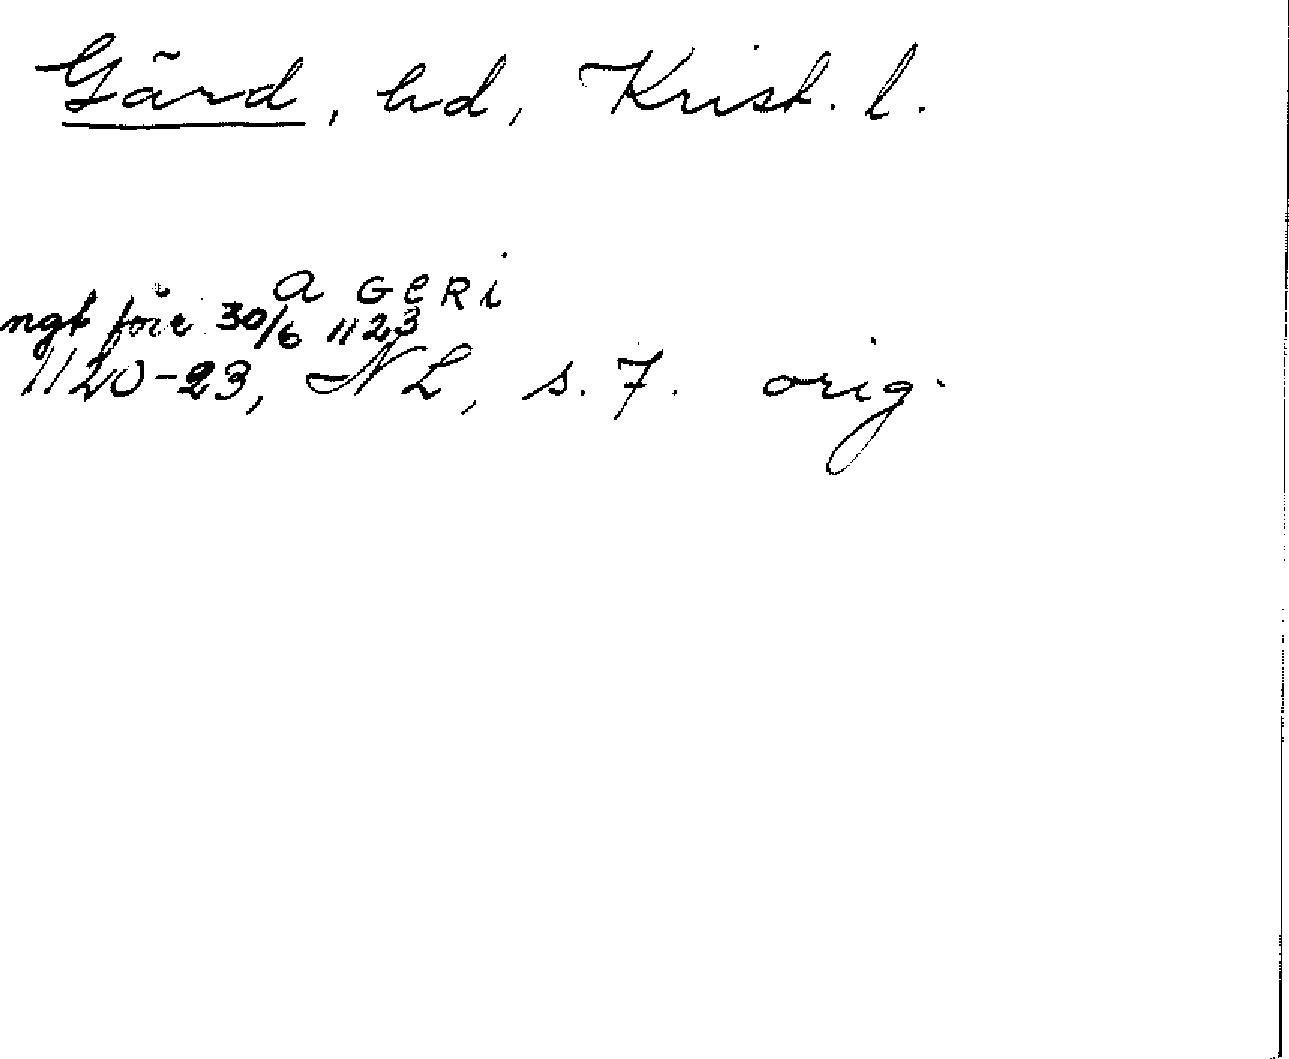 Gärd, hd, Krist. l.
a GeRi
ngt före 30/6 1123
1120-23, NL, s. 7. orig.